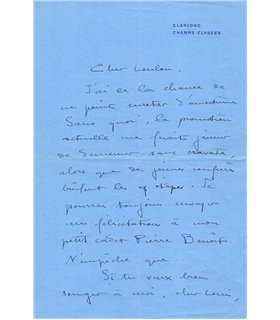 CLARIDGE
CHAMPS-ELYSÉES
Cher Loulou,
J'ai de la chance de
ne point
Sans quoi, la promotion
actuelle me ferait jaunir
de demeurer sans cravate,
alors que de jeunes
brûlent les étapes. Je
pourrai toujours envoyer
mes félicitations à mon
petit cadet Pierre Benoit
N'empêche que ...
Si tu veux bien
songer à moi, cher Louis,